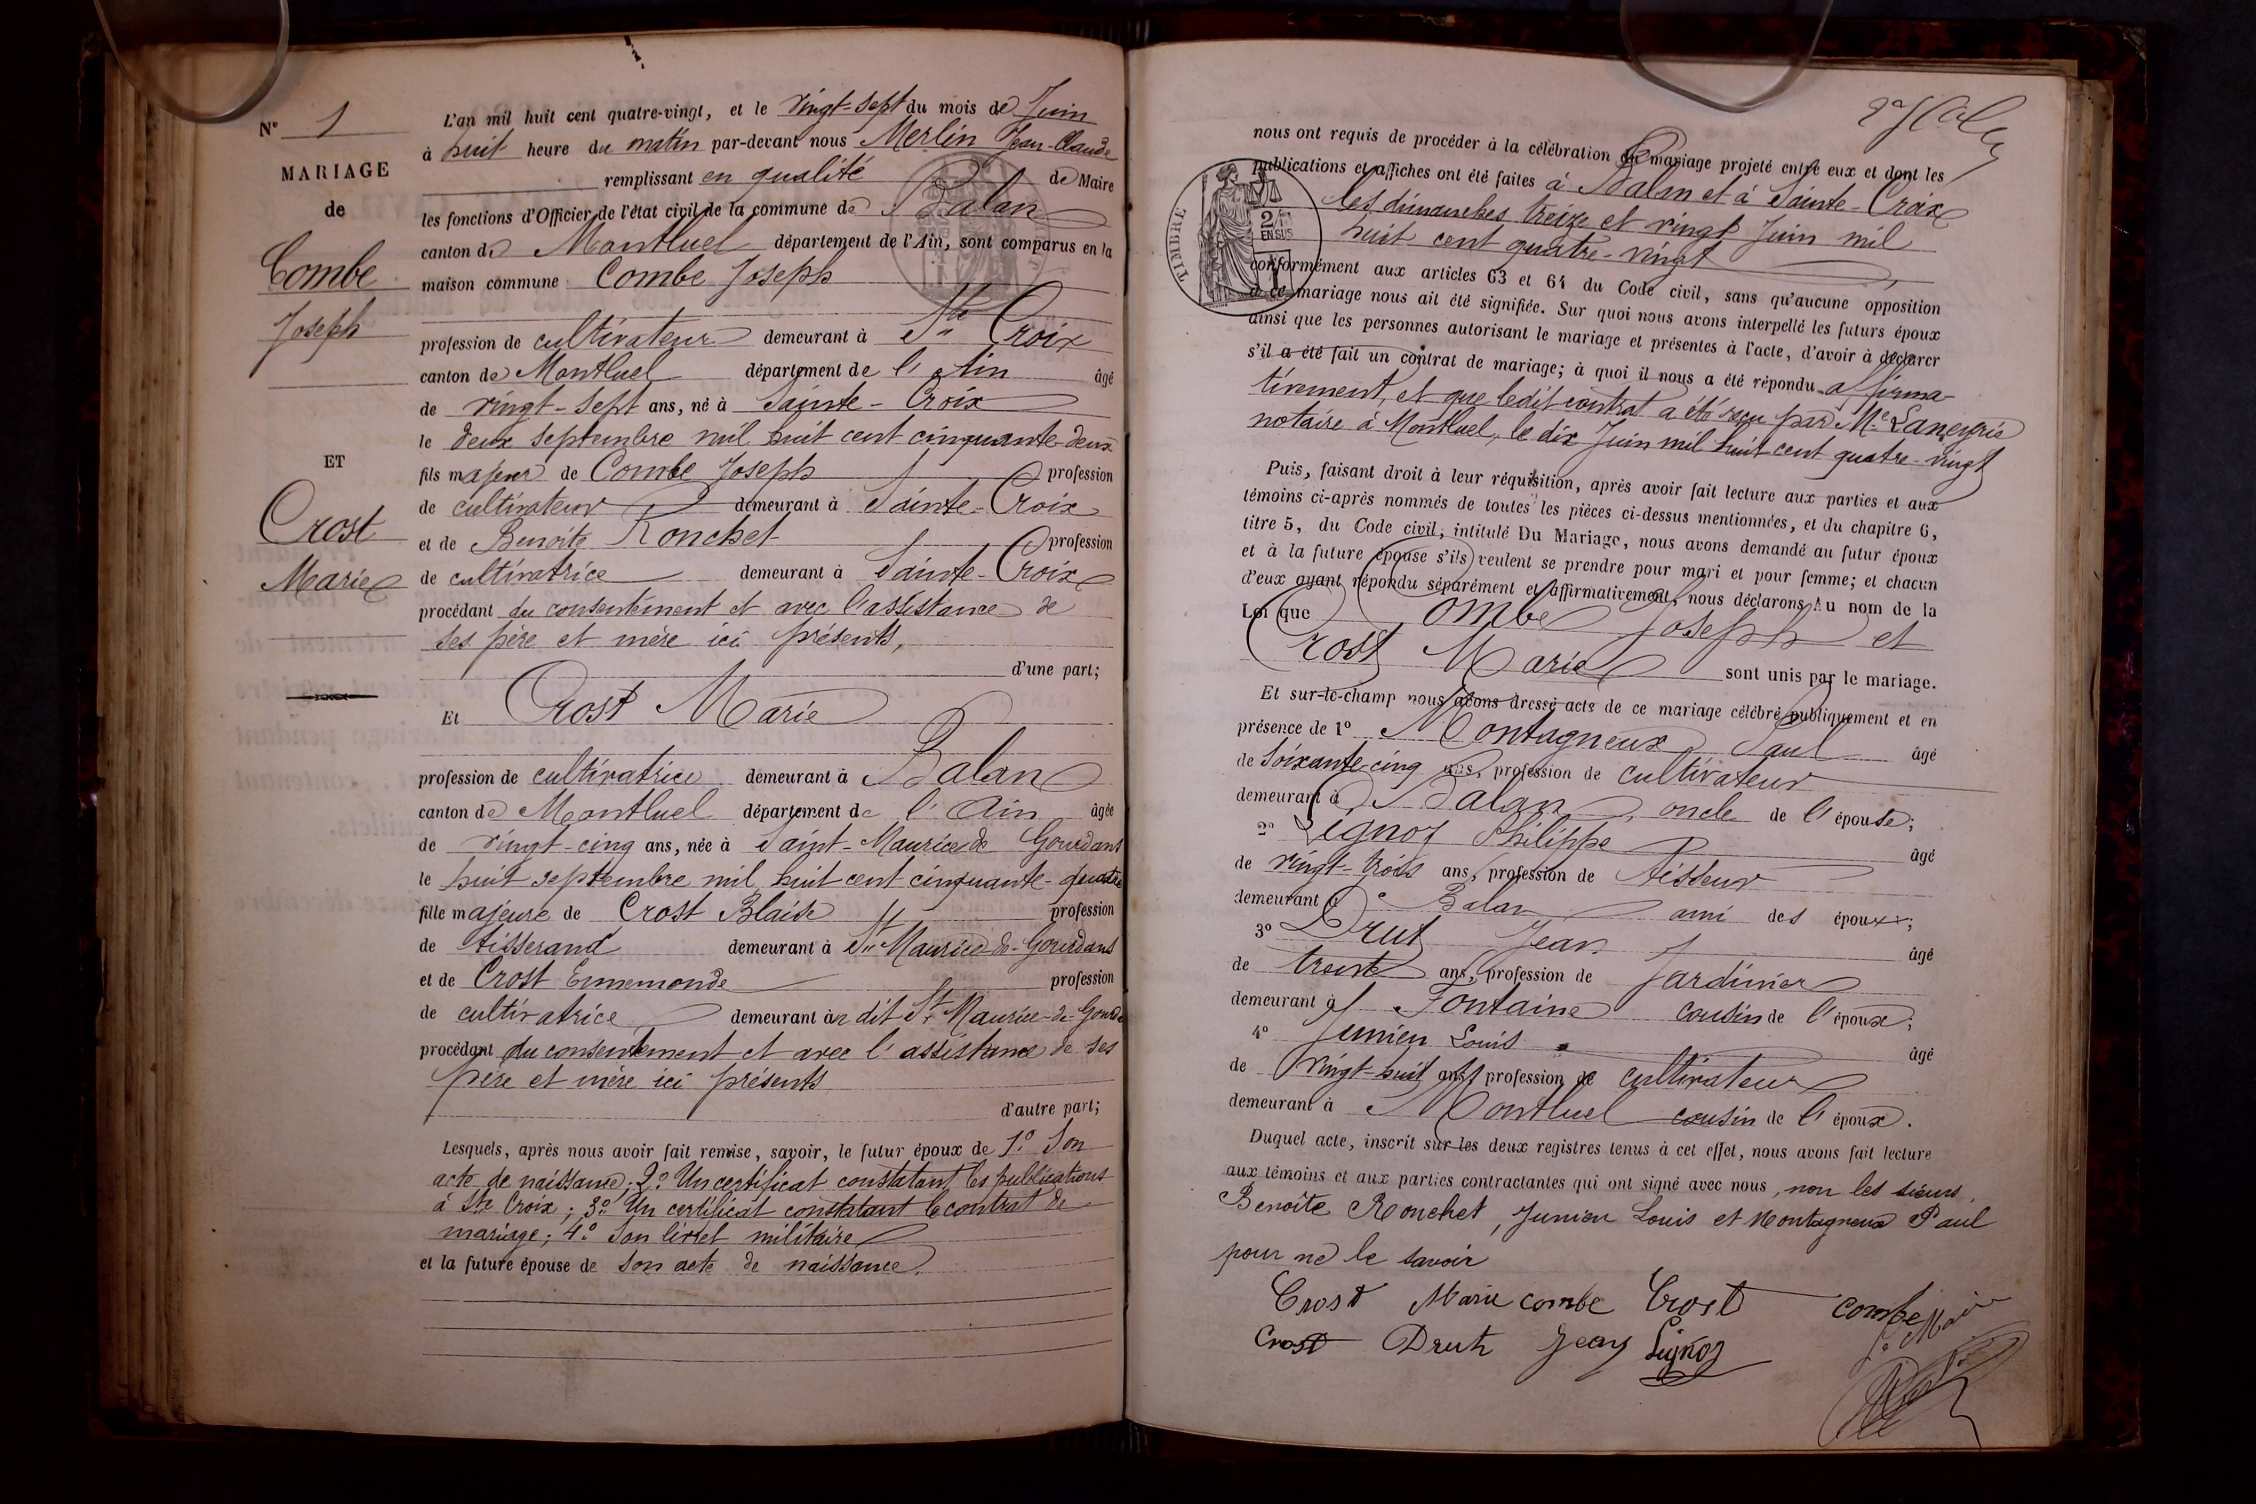 N° 1
MARIAGE
de
Combe
Joseph
ET
Crost
Marie
L'an mil huit cent quatre-vingt, et le vingt-sept du mois de Juin
à huit heure du matin par-devant nous Merlin Jean-Claude
remplissant en qualité de Maire
les fonctions d'Officier de l'état civil de la commune de Balan
canton de Montluel département de l'Ain, sont comparus en la
maison commune Combe Joseph
profession de cultivateur demeurant à Ste Croix
canton de Montluel département de l'Ain âgé
de vingt-sept ans, né à Sainte-Croix
le deux septembre mil huit cent cinquante-deux
fils majeur de Combe Joseph profession
de cultivateur demeurant à Sainte-Croix
et de Benoîte Ronchet profession
de cultivatrice demeurant à Sainte-Croix
procédant du consentement et avec l'assistance de
ses père et mère ici présents,
d'une part;
Et Crost Marie
profession de cultivatrice demeurant à Balan
canton de Montluel département de l'Ain âgée
de vingt-cinq ans, née à Saint-Maurice de Gourdans
le huit septembre mil huit cent cinquante-quatre
fille majeure de Crost Blaise profession
de tisserand demeurant à St Maurice-de-Gourdans
et de Crost Ennemonde profession
de cultivatrice demeurant à dit St Maurice-de-Gourds
procédant du consentement et avec l'assistance de ses
père et mère ici présents
d'autre part;
Lesquels, après nous avoir fait remise, savoir, le futur époux de 1° Son
acte de naissance; 2° Un certificat constatant les publications
à Ste Croix; 3° Un certificat constatant le contrat de
mariage; 4° Son livret militaire
et la future épouse de son acte de naissance.
nous ont requis de procéder à la célébration du mariage projeté entre eux et dont les
publications et affiches ont été faites à Balan et à Sainte-Croix
les dimanches treize et vingt Juin mil
huit cent quatre-vingt
conformément aux articles 63 et 64 du Code civil, sans qu'aucune opposition
à ce mariage nous ait été signifiée. Sur quoi nous avons interpellé les futurs époux
ainsi que les personnes autorisant le mariage et présentes à l'acte, d'avoir à déclarer
s'il a été fait un contrat de mariage; à quoi il nous a été répondu affirma-
tivement, et que ledit contrat a été reçu par Me Laneyrie
notaire à Montluel, le dix Juin mil huit cent quatre-vingt
Puis, faisant droit à leur réquisition, après avoir fait lecture aux parties et aux
témoins ci-après nommés de toutes les pièces ci-dessus mentionnées, et du chapitre 6,
titre 5, du Code civil, intitulé Du Mariage, nous avons demandé au futur époux
et à la future épouse s'ils veulent se prendre pour mari et pour femme; et chacun
d'eux ayant répondu séparément et affirmativement, nous déclarons au nom de la
Loi que Combe Joseph et
Crost Marie sont unis par le mariage.
Et sur-le-champ nous avons dressé acte de ce mariage célébré publiquement et en
présence de 1° Montagneux Paul âgé
de soixante-cinq ans, profession de cultivateur
demeurant à Balan, oncle de l'épouse;
2° Lignoz Philippe âgé
de vingt-trois ans, profession de tisseur
demeurant à Balan ami des époux;
3° Drut Jean âgé
de trente ans, profession de Jardinier
demeurant à Fontaine cousin de l'époux;
4° Junien Louis âgé
de vingt-huit ans, profession de cultivateur
demeurant à Montluel cousin de l'époux.
Duquel acte, inscrit sur les deux registres tenus à cet effet, nous avons fait lecture
aux témoins et aux parties contractantes qui ont signé avec nous, non les sieurs
Benoîte Ronchet, Junien Louis et Montagneux Paul
pour ne le savoir
Crost Marie combe Crost combe
Le Maire
Crost Drut Jean Lignoz
TIMBRE
2/10
EN SUS